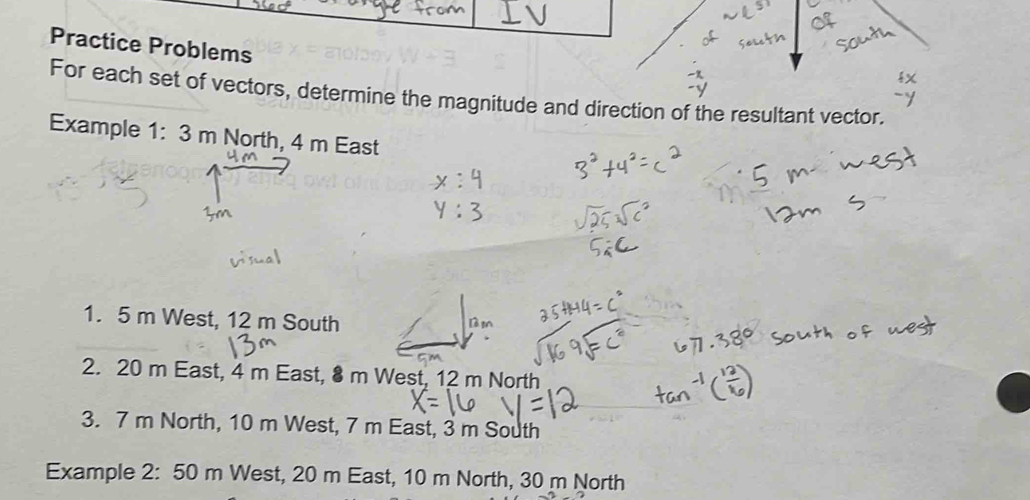 angle from
IV
of south
of south
-x
-y
+x
-y
Practice Problems
For each set of vectors, determine the magnitude and direction of the resultant vector.
Example 1: 3 m North, 4 m East
4m
3m
visual
x : 4
y : 3
3² + 4² = c²
√25 = √c²
5 = c
5 m west
12m s
1. 5 m West, 12 m South
13m
12m
5m
25+144 = c²
√169 = c²
67.38° south of west
2. 20 m East, 4 m East, 8 m West, 12 m North
x=16 y=12
tan⁻¹(12/16)
3. 7 m North, 10 m West, 7 m East, 3 m South
Example 2: 50 m West, 20 m East, 10 m North, 30 m North